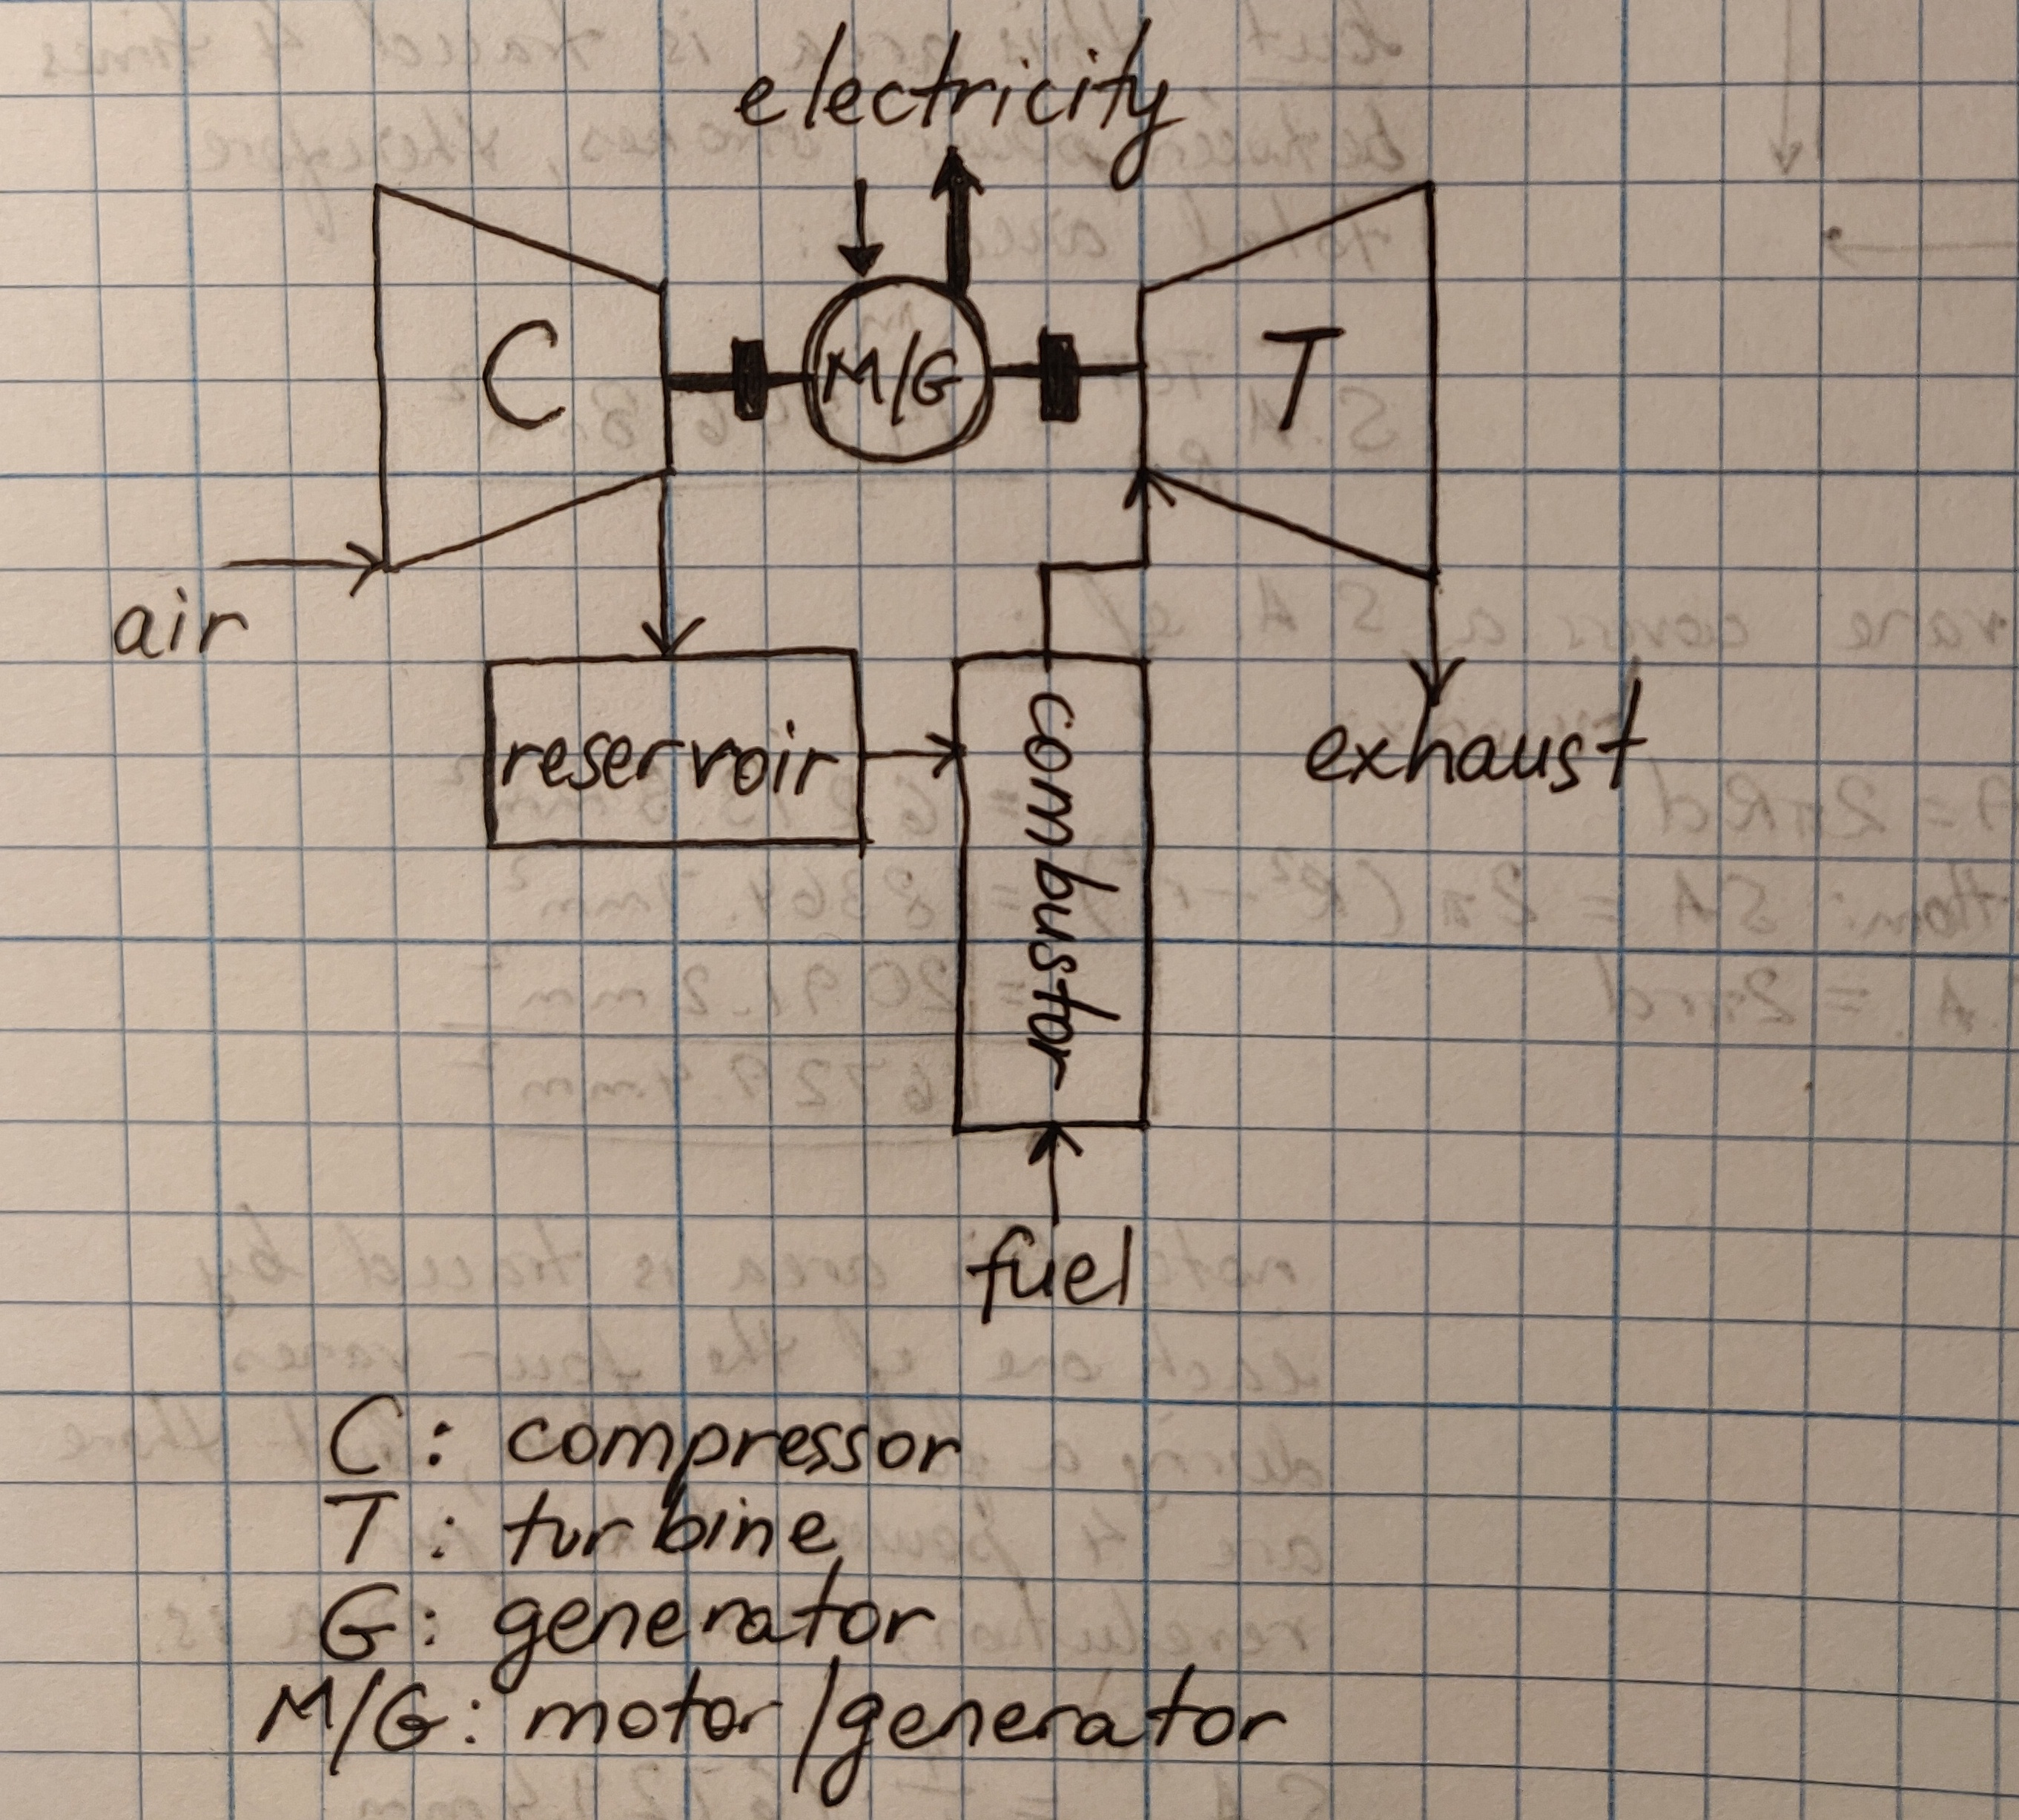 electricity
C
M/G
T
air
reservoir
combustor
exhaust
fuel
C: compressor
T: turbine
G: generator
M/G: motor/generator